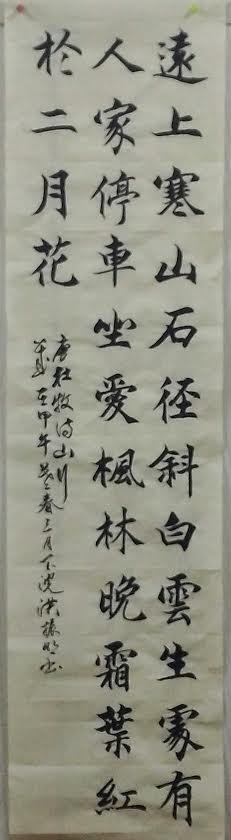 遠上寒山石径斜白雲生處有
人家停車坐愛楓林晚霜葉紅
於二月花
唐杜牧詩山行
甲午暮春三月下浣洪振明書